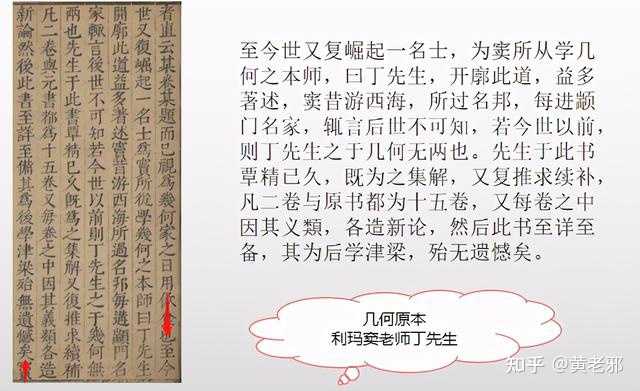 者直云某卷某題而已視為幾何家之日用也至今
世又復崛起一名士為竇所從學幾何之本師曰丁先生
開廓此道益多著述竇昔游西海所過名邦每遘顓門名
家輒言後世不可知若今世以前則丁先生之于幾何無
兩也先生于此書覃精已久既為之集解又復推求續補
凡二卷與元書都為十五卷又每卷之中因其義類各造
新論然後此書至詳至備其為後學津梁殆無遺憾矣竇
至今世又复崛起一名士，为窦所从学几
何之本师，曰丁先生，开廓此道，益多
著述，窦昔游西海，所过名邦，每进颛
门名家，辄言后世不可知，若今世以前，
则丁先生之于几何无两也。先生于此书
覃精已久，既为之集解，又复推求续补，
凡二卷与原书都为十五卷，又每卷之中
因其义類，各造新论，然后此书至详至
备，其为后学津梁，殆无遗憾矣。
几何原本
利玛窦老师丁先生
知乎 @黄老邪